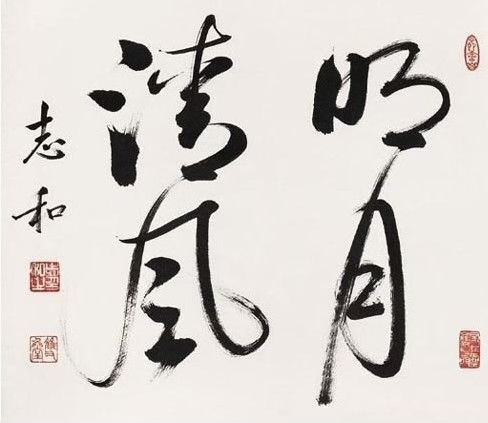 明月
清风
志和